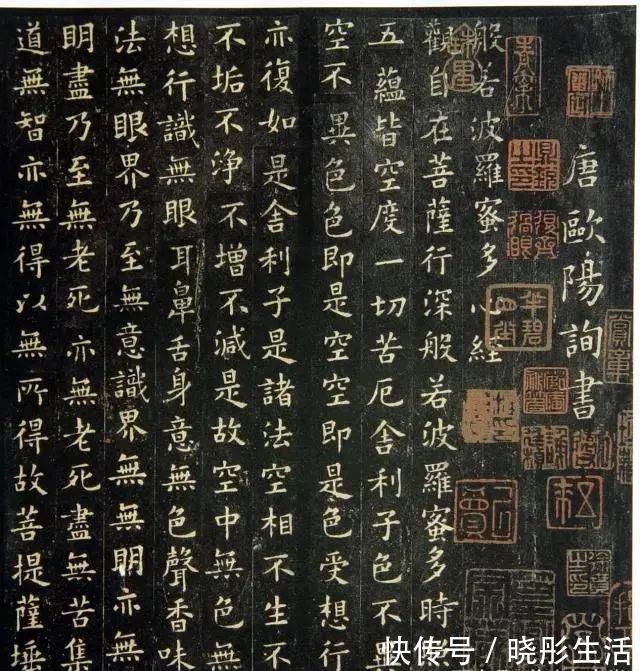 唐歐陽詢書
般若波羅蜜多心經
觀自在菩薩行深般若波羅蜜多時
五蘊皆空度一切苦厄舍利子色不異
空不異色色即是空空即是色受想行
亦復如是舍利子是諸法空相不生不
不垢不浄不增不減是故空中無色無
想行識無眼耳鼻舌身意無色聲香味
法無眼界乃至無意識界無無明亦無
明盡乃至無老死亦無老死盡無苦集
道無智亦無得以無所得故菩提薩埵
快传号 / 晓彤生活